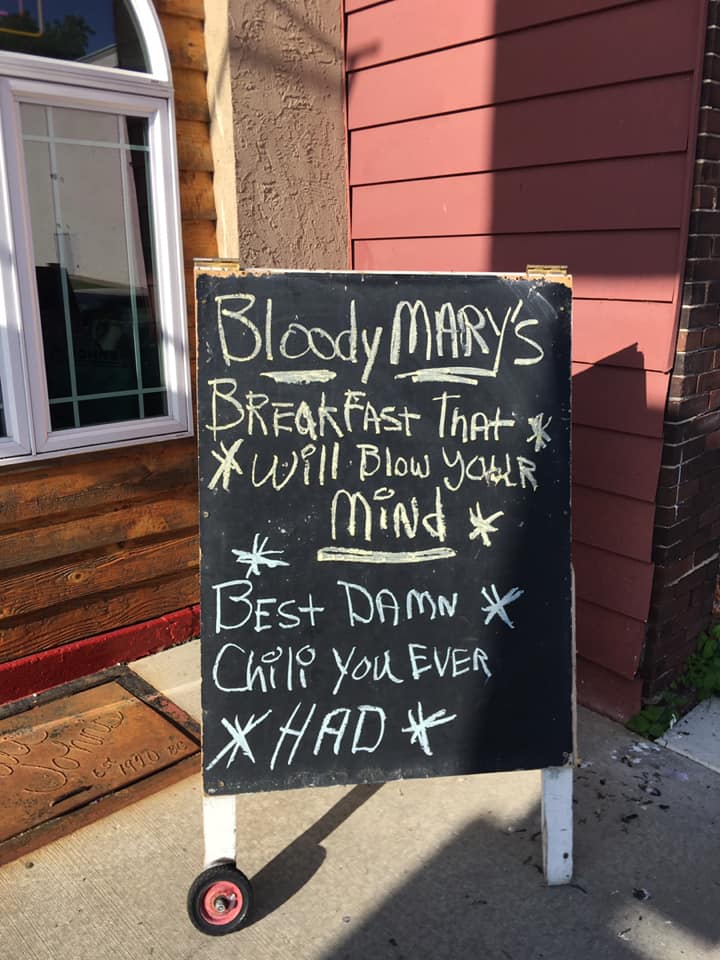 Bloody MARY's
BREAKFAST THAT *
* Will Blow YOUR
MiNd *
*
BEST DAMN *
Chili You EVER
* HAD *
John's
Est 1970